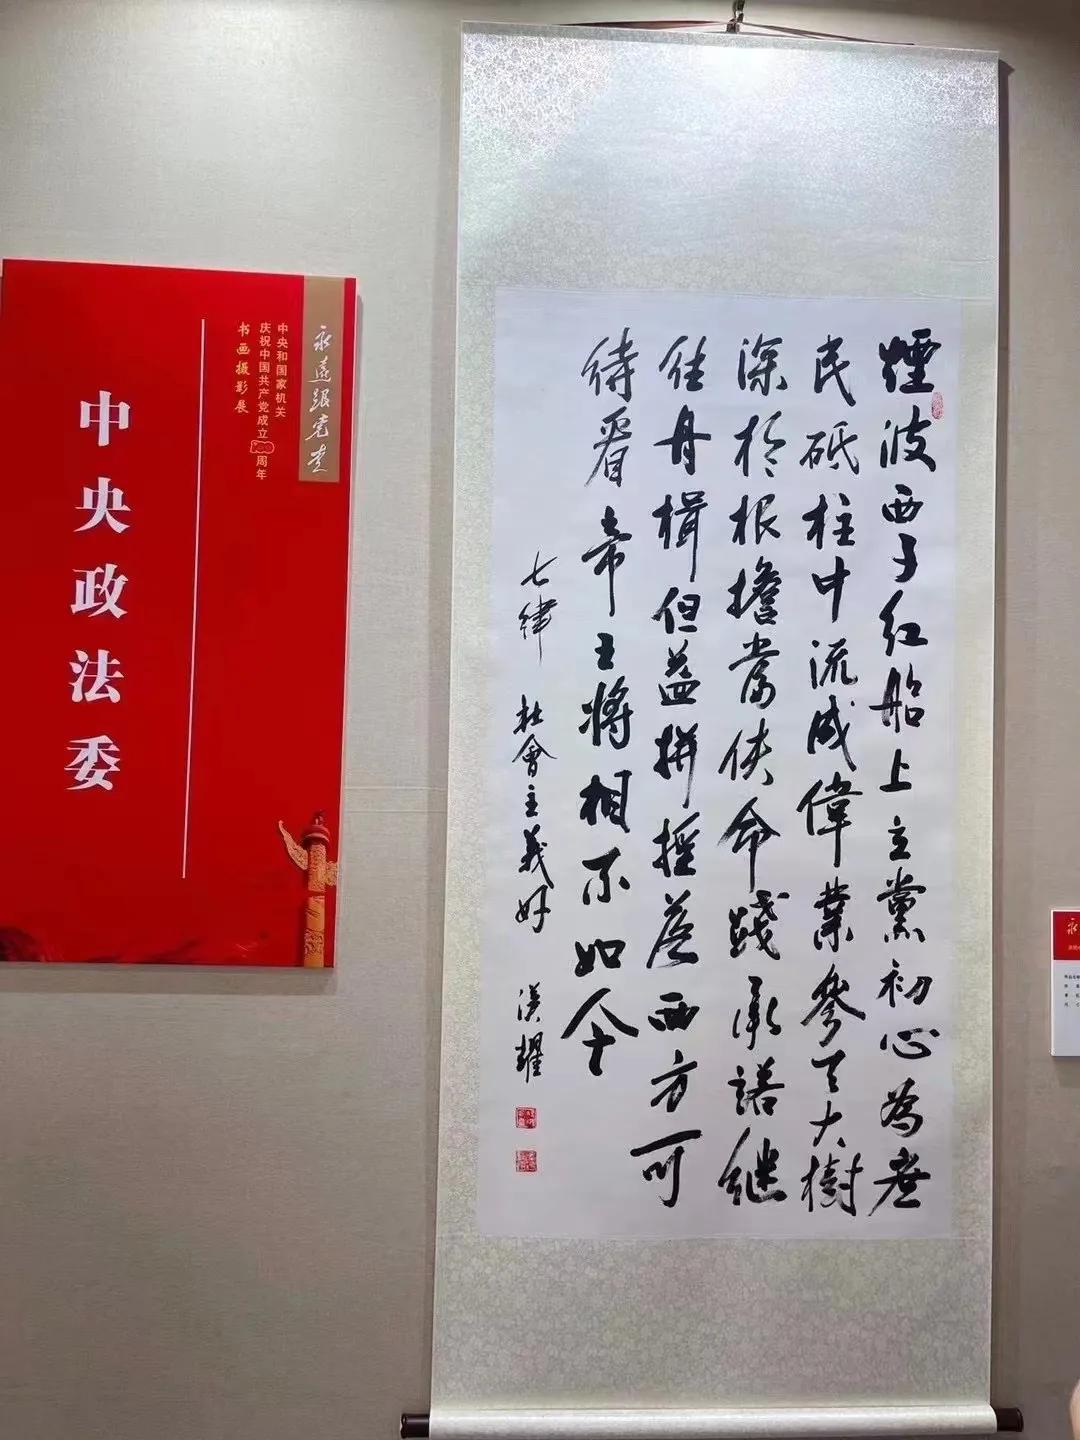 煙波西子红船上立黨初心為庶
民砥柱中流成偉業參天大樹
深於根擔當使命踐承諾继
舟楫但益拼西方可
待看帝王將相不如今
七律 社會主義好
永遠跟党走
中央和国家机关
庆祝中国共产党成立100周年
书画摄影展
中央政法委